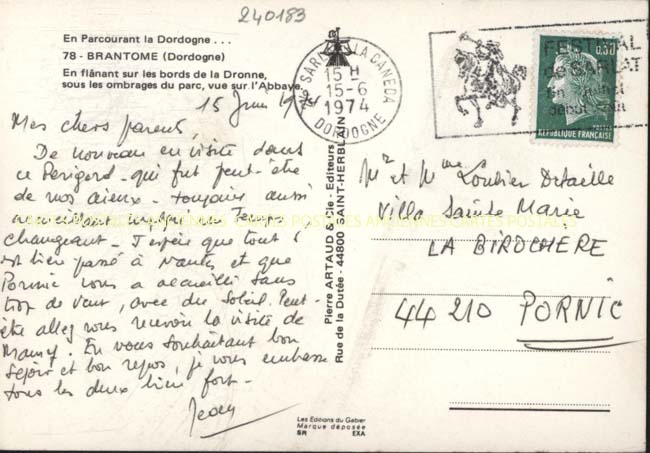 240183
En Parcourant la Dordogne . . .
78 - BRANTOME (Dordogne)
En flânant sur les bords de la Dronne,
sous les ombrages du parc, vue sur l'Abbaye.
SARLAT LA CANEDA
15 H
15-6
1974
DORDOGNE
FESTIVAL
de SARLAT
0,30
POSTES
RÉPUBLIQUE FRANÇAISE
15 Juin 1974
Mes chers parents,
De nouveau en visite dans
ce Périgord - qui fut peut-être
de nos aieux - toujours aussi
accueillant malgré le Temps
changeant - J'espère que tout s'
est bien passé à Nantes et que
Pornic vous a accueilli sans
trop de vent, avec du Soleil. Peut-
être allez vous recevoir la visite de
Mamy. En vous souhaitant bon
séjour et bon repos, je vous embrasse
tous les deux bien fort -
Jean
Pierre ARTAUD & Cie - Editeurs
Rue de la Dutée - 44800 SAINT-HERBLAIN
Mr et Mme Loubier
Villa Sainte Marie
LA BIROCHERE
44 210 PORNIC
CARTES POSTALES ANCIENNES
Les Editions du Gabier
Marque déposée
SR EXA